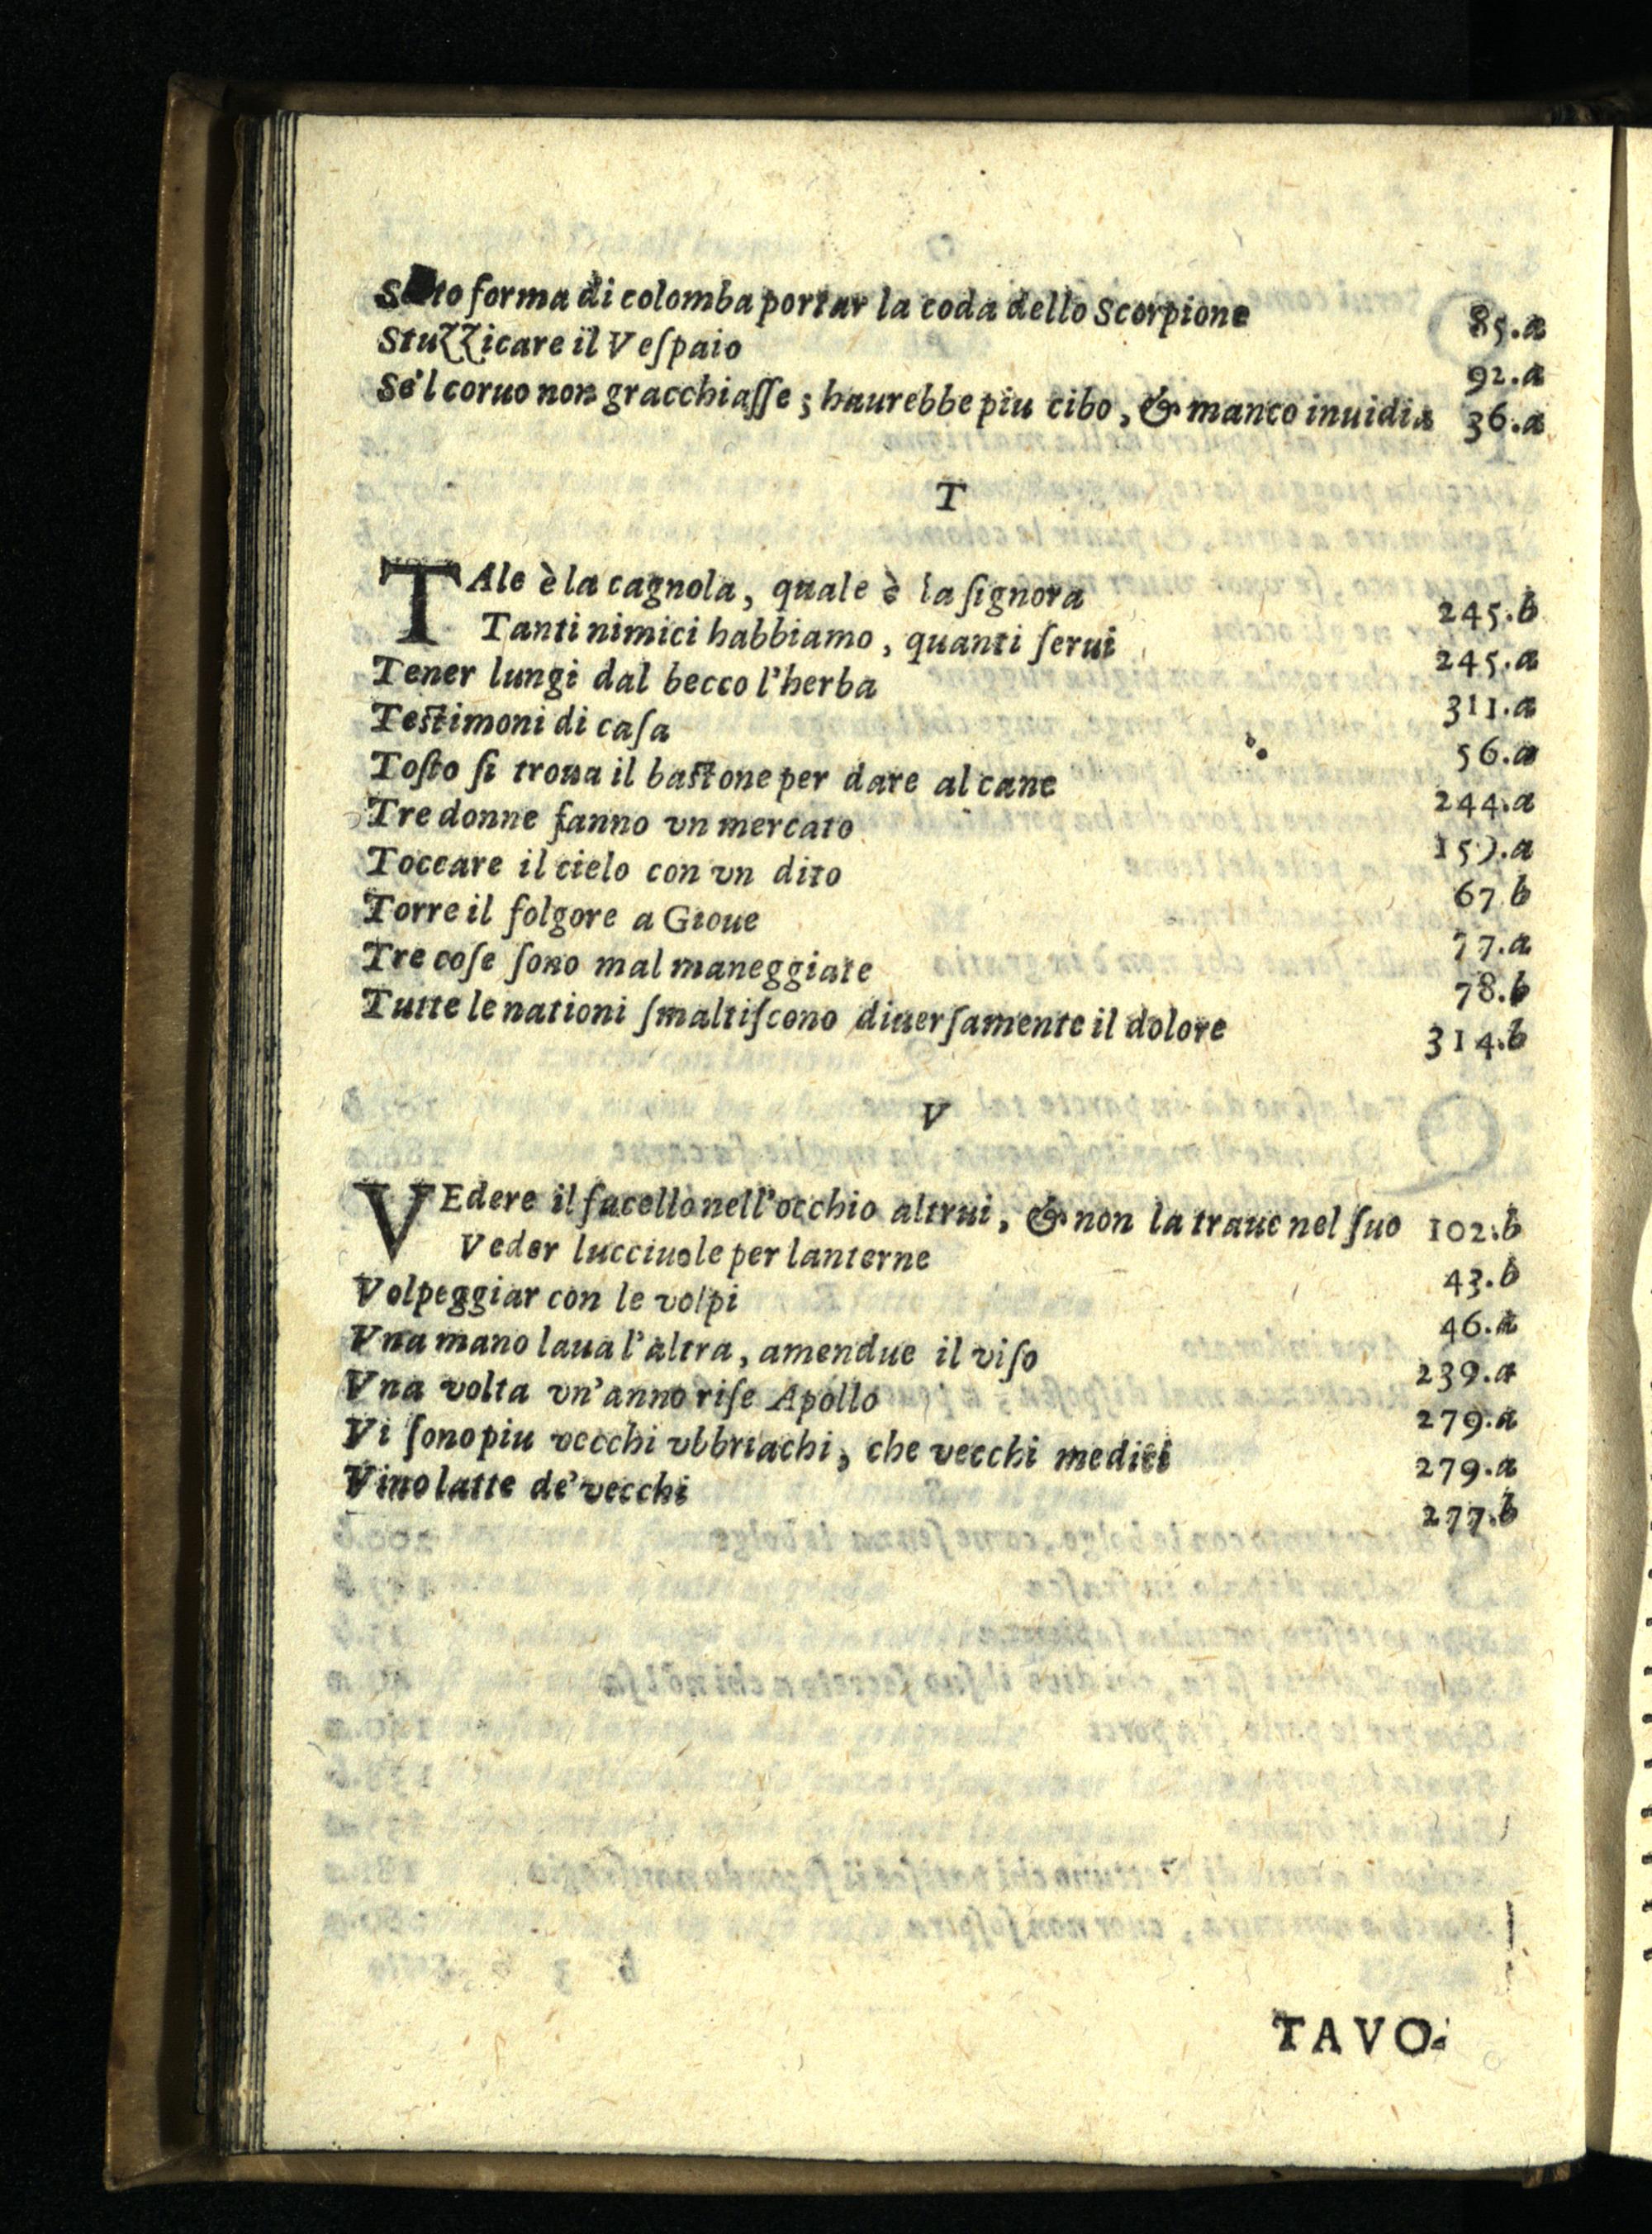 Sotto forma di colomba portar la coda dello Scorpione 85.a
Stuzzicare il Veſpaio 92.a
Se'l coruo non gracchiaſſe; haurebbe piu cibo, & manco inuidia 36.a
T
TAle è la cagnola, quale è la ſignora 245.b
Tanti nimici habbiamo, quanti ſerui 245.a
Tener lungi dal becco l'herba 311.a
Teſtimoni di caſa 56.a
Toſto ſi troua il baſtone per dare al cane 244.a
Tre donne fanno vn mercato
Toccare il cielo con vn dito 67 b
Torre il folgore a Gioue 77.a
Tre coſe ſono mal maneggiate 78.b
Tutte le nationi ſmaltiſcono diuerſamente il dolore 314.b
V
VEdere il fucello nell'occhio altrui, & non la traue nel ſuo 102.b
Veder lucciuole per lanterne 43.b
Volpeggiar con le volpi 46.a
Vna mano laua l'altra, amendue il viſo 239.a
Vna volta vn'anno riſe Apollo 279.a
Vi ſono piu vecchi vbbriachi, che vecchi medici 279.a
Vino latte de'vecchi 277.b
TAVO-